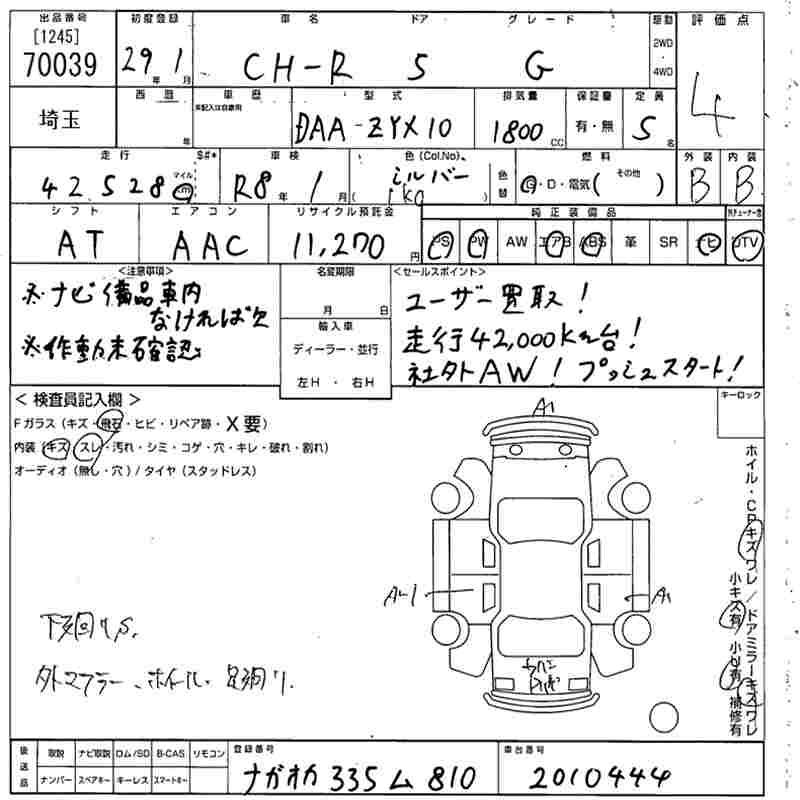 出品番号 初度登録 車名 ドア グレード 駆動 評価点
[1245]
70039 29年 1月 CH-R 5 G 2WD 4WD 4
埼玉 西暦 年 車歴 未記入は自家用 型式 排気量 保証書 定員
DAA-ZYX10 1800CC 有・無 5名
走行 S#* 車検 色(Col.No). 燃料 外装 内装
42,528 マイル km R8年 1月 シルバー 1K0 色替 G・D・電気( その他 ) B B
シフト エアコン リサイクル預託金 純正装備品
AT AAC 11,270円 PS PW AW エアB ABS 革 SR ナビ TV
<注意事項> 名変期限 <セールスポイント>
※ナビ備品車内 月 日 ユーザー買取!
なければ欠 輸入車 走行42,000km台!
※作動未確認 ディーラー・並行 社外AW!プッシュスタート!
左H・右H
<検査員記入欄> キーロック
Fガラス(キズ・飛石・ヒビ・リペア跡・X要)
内装(キズ・スレ・汚れ・シミ・コゲ・穴・キレ・破れ・割れ)
オーディオ(無し・穴)/タイヤ(スタッドレス)
A1
A1
ホイル・CPキズワレ/ドアミラーキズワレ
小キズ有 小U有 補修有
下廻りS.
外マフラー、ホイール、足廻り.
後送品 取説 ナビ取説 ロム/SD B-CAS リモコン 登録番号 車台番号
ナンバー スペアキー キーレス スマートキー ナガオカ 335 ム 810 2010444